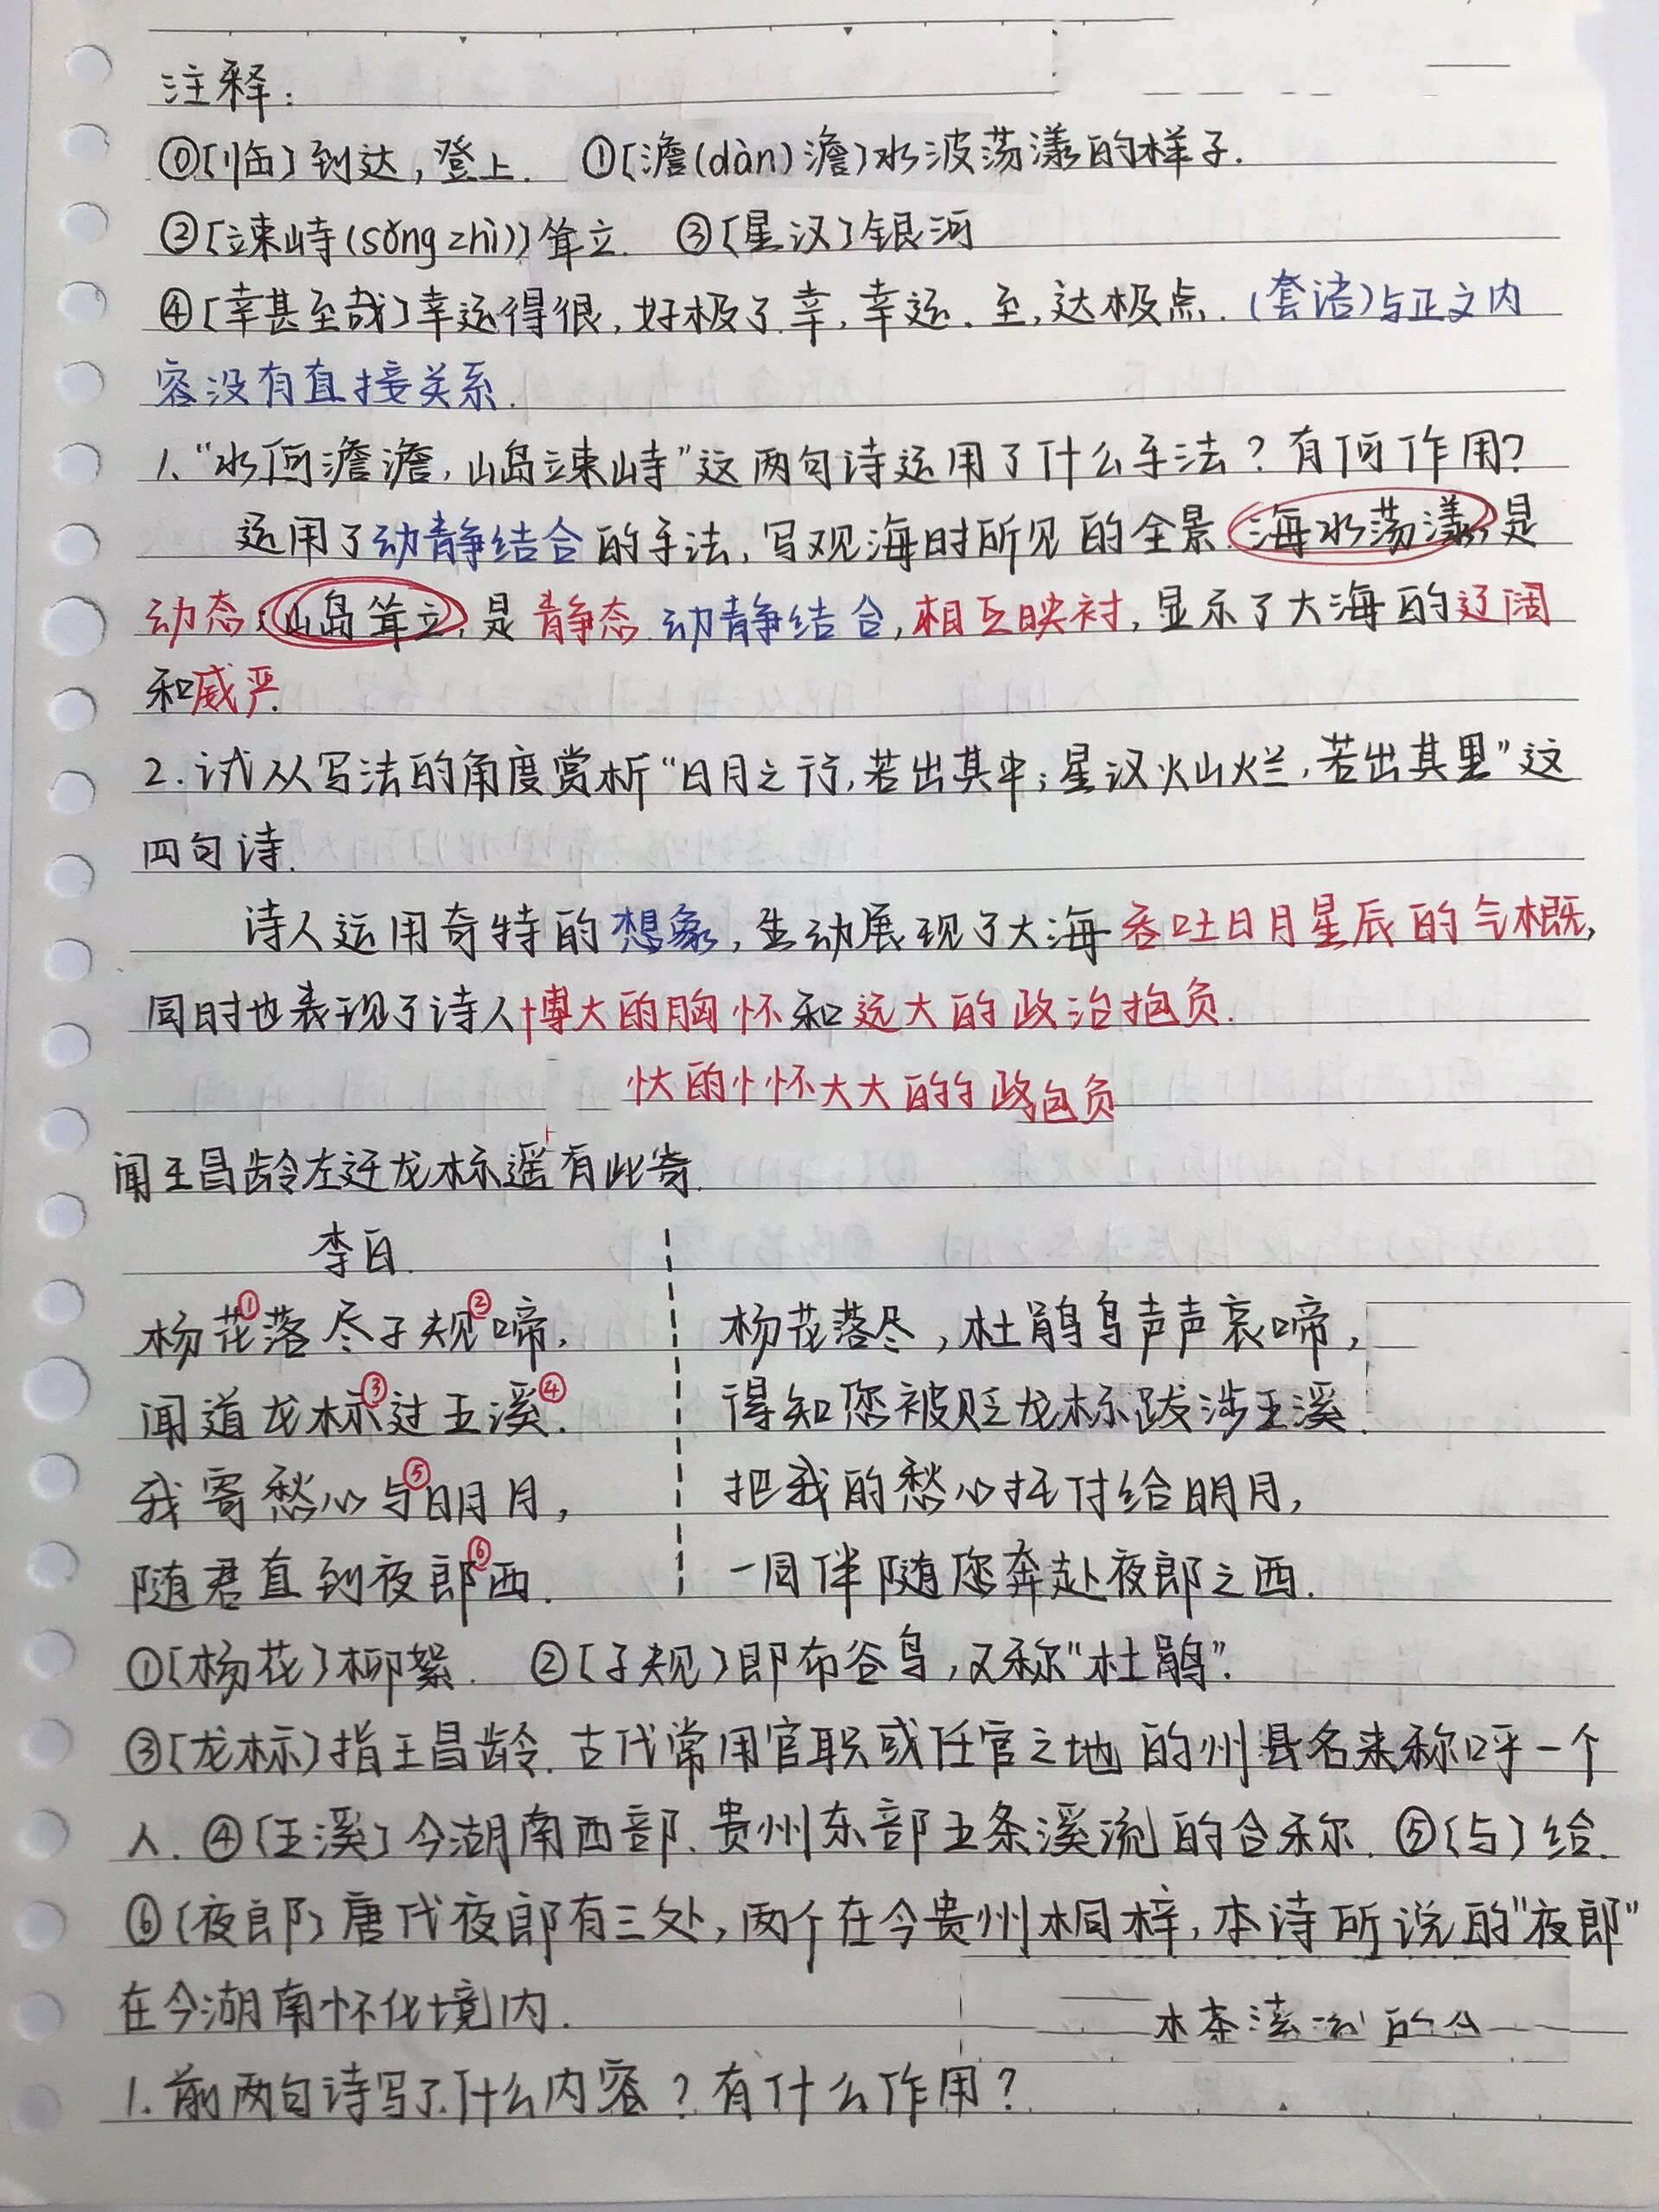 注释:
⓪[临]到达,登上. ①[澹(dàn)澹]水波荡漾的样子.
②[竦峙(sǒng zhì)]耸立. ③[星汉]银河
④[幸甚至哉]幸运得很,好极了.幸,幸运.至,达极点.(套语)与正文内
容没有直接关系.
1."水何澹澹,山岛竦峙"这两句诗运用了什么手法?有何作用?
运用了动静结合的手法,写观海时所见的全景.海水荡漾是
动态;山岛耸立,是静态.动静结合,相互映衬,显示了大海的辽阔
和威严.
2.试从写法的角度赏析"日月之行,若出其中;星汉灿烂,若出其里"这
四句诗.
诗人运用奇特的想象,生动展现了大海吞吐日月星辰的气概,
同时也表现了诗人博大的胸怀和远大的政治抱负.
大的怀大大的政包负
闻王昌龄左迁龙标遥有此寄.
李白.
杨花①落尽子规②啼, 杨花落尽,杜鹃鸟声声哀啼,
闻道龙标③过五溪④. 得知您被贬龙标跋涉五溪.
我寄愁心与⑤明月, 把我的愁心托付给明月,
随君直到夜郎⑥西. 一同伴随您奔赴夜郎之西.
①[杨花]柳絮. ②[子规]即布谷鸟,又称"杜鹃".
③[龙标]指王昌龄.古代常用官职或任官之地的州县名来称呼一个
人. ④[五溪]今湖南西部.贵州东部五条溪流的合称. ⑤[与]给.
⑥[夜郎]唐代夜郎有三处,两个在今贵州桐梓,本诗所说的"夜郎"
在今湖南怀化境内.
1.前两句诗写了什么内容?有什么作用?